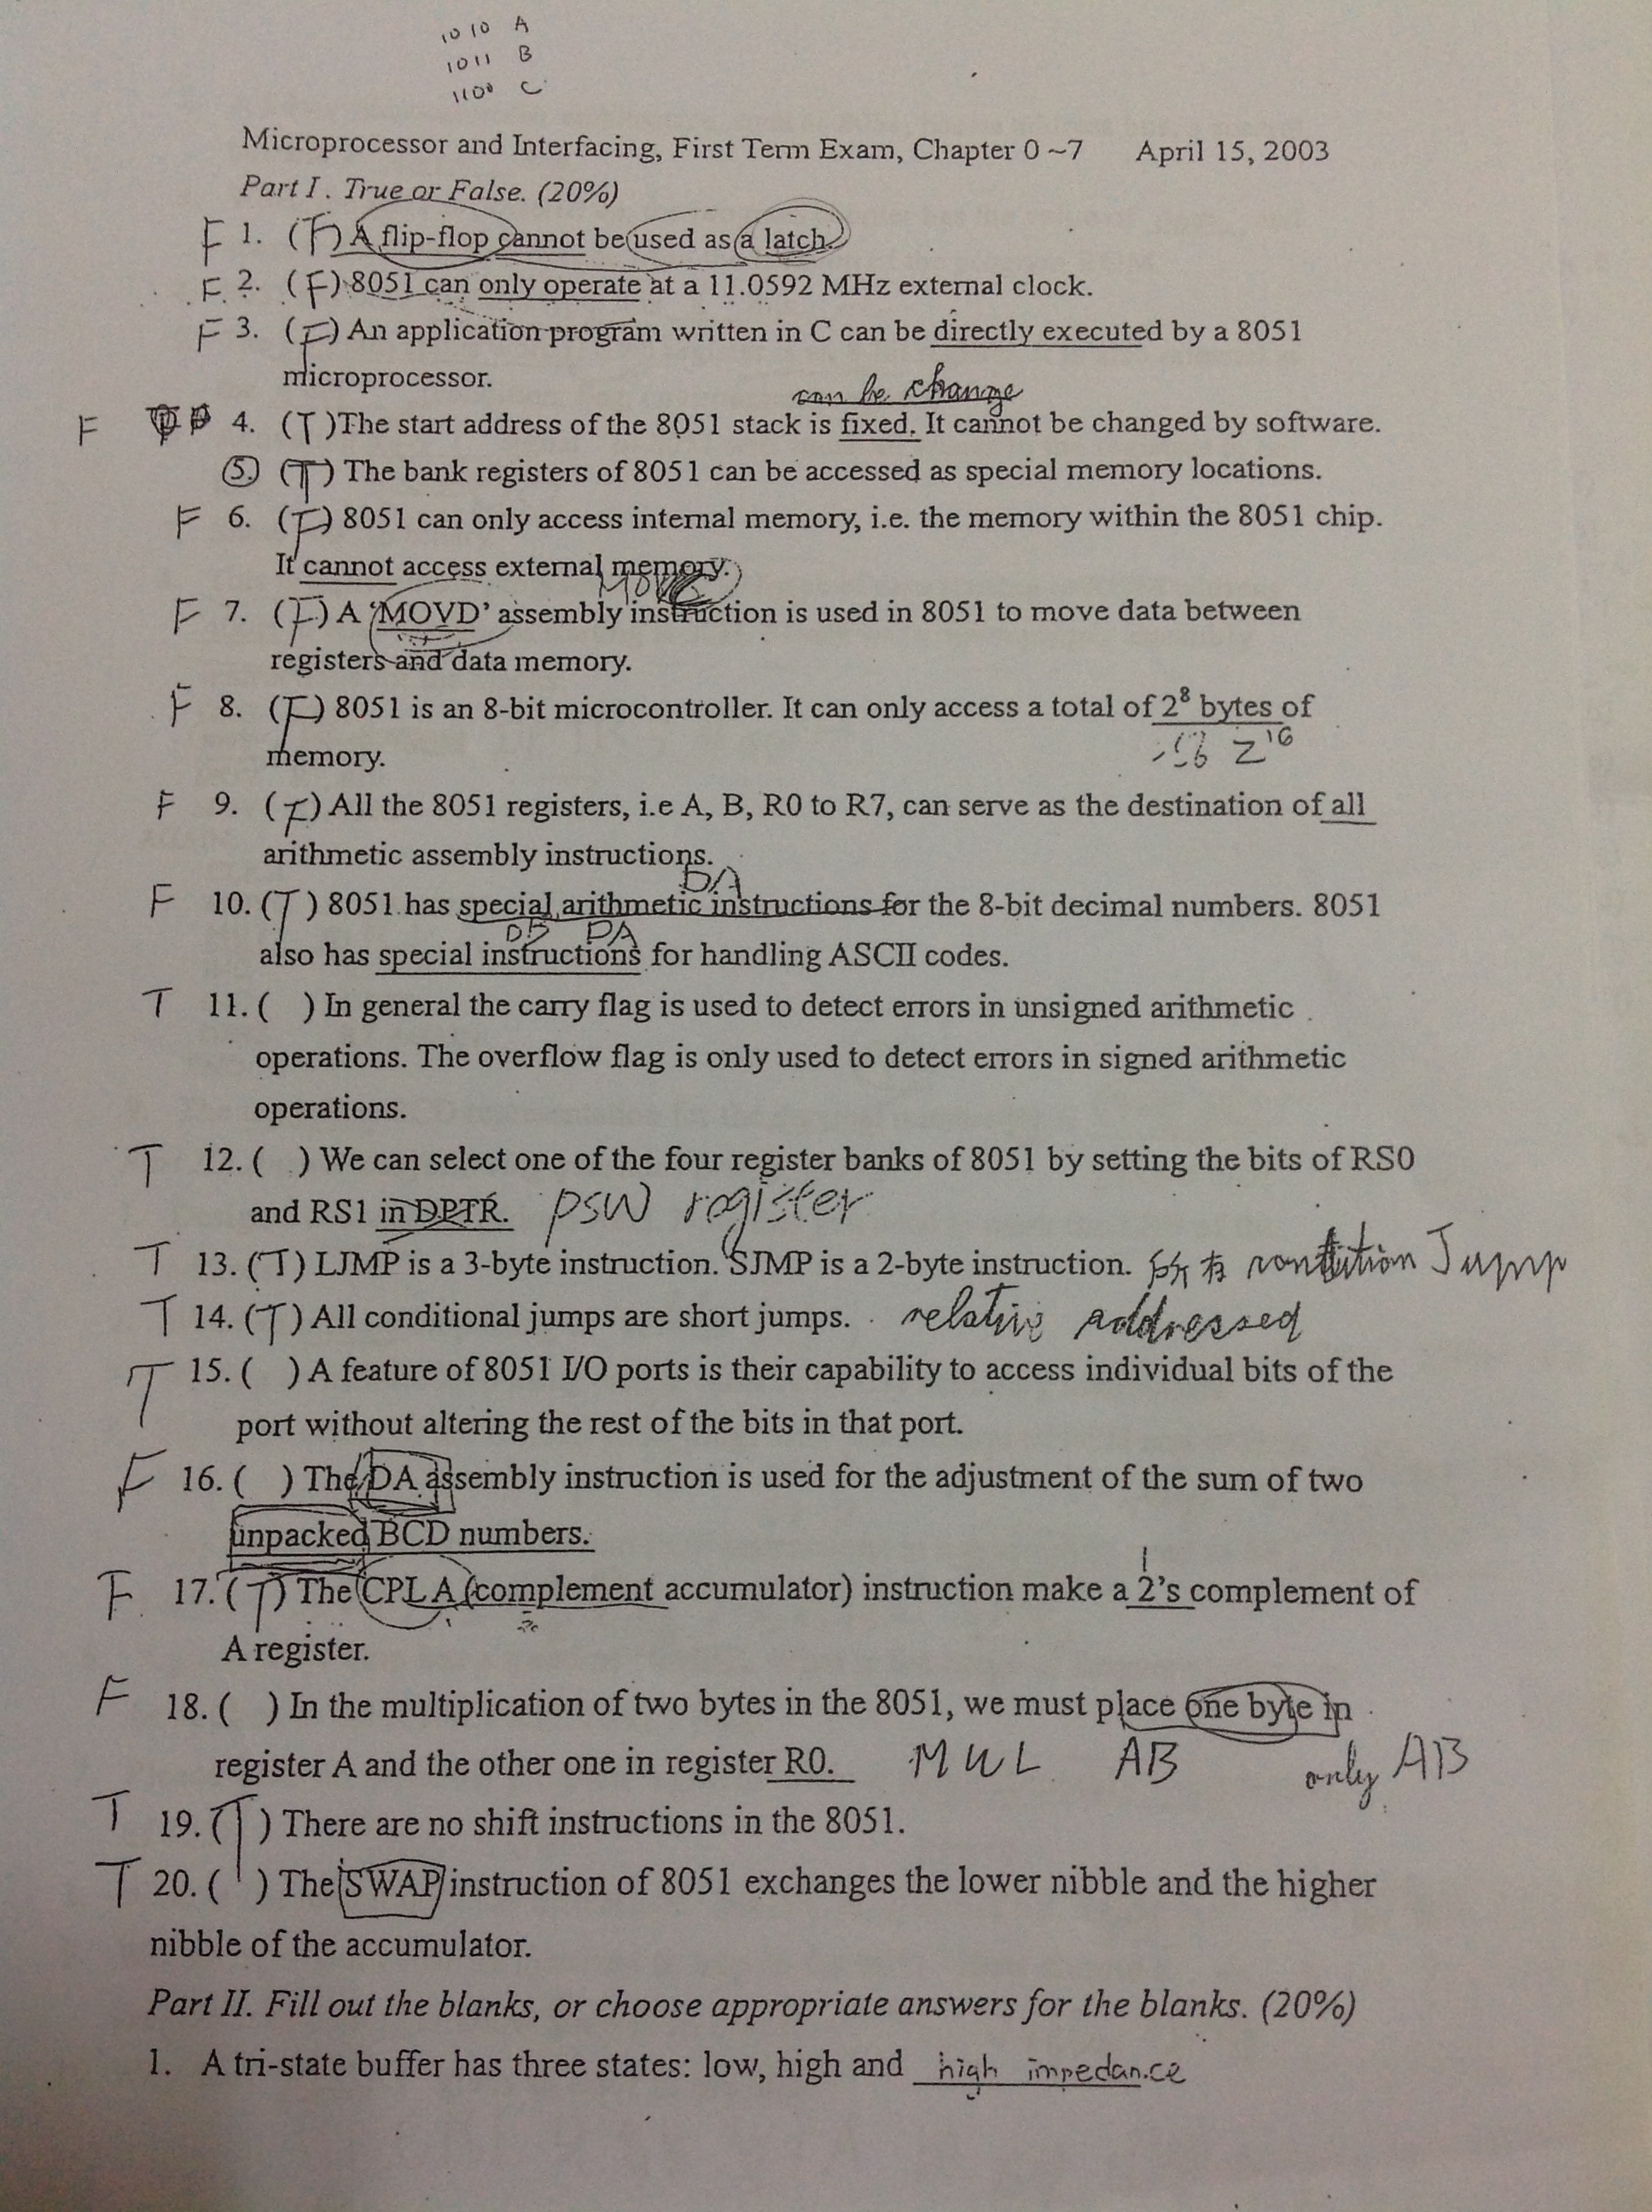 1010 A
1011 B
1100 C
Microprocessor and Interfacing, First Term Exam, Chapter 0 ~7 April 15, 2003
Part I . True or False. (20%)
F 1. (F) A flip-flop cannot be used as a latch.
F 2. (F) 8051 can only operate at a 11.0592 MHz external clock.
F 3. (F) An application program written in C can be directly executed by a 8051
microprocessor.
can be change
F 4. (T )The start address of the 8051 stack is fixed. It cannot be changed by software.
5. (T) The bank registers of 8051 can be accessed as special memory locations.
F 6. (F) 8051 can only access internal memory, i.e. the memory within the 8051 chip.
It cannot access external memory.
F 7. (F) A ‘MOVD’ assembly instruction is used in 8051 to move data between
registers and data memory.
F 8. (F) 8051 is an 8-bit microcontroller. It can only access a total of 2⁸ bytes of
memory. 2¹⁶
F 9. (F) All the 8051 registers, i.e A, B, R0 to R7, can serve as the destination of all
arithmetic assembly instructions.
DA
F 10. (T ) 8051 has special arithmetic instructions for the 8-bit decimal numbers. 8051
DB DA
also has special instructions for handling ASCII codes.
T 11. ( ) In general the carry flag is used to detect errors in unsigned arithmetic
operations. The overflow flag is only used to detect errors in signed arithmetic
operations.
T 12. ( ) We can select one of the four register banks of 8051 by setting the bits of RS0
and RS1 in DPTR. PSW register
T 13. (T) LJMP is a 3-byte instruction. SJMP is a 2-byte instruction. 所有 Jump
T 14. (T) All conditional jumps are short jumps. relative addressed
T 15. ( ) A feature of 8051 I/O ports is their capability to access individual bits of the
port without altering the rest of the bits in that port.
F 16. ( ) The DA assembly instruction is used for the adjustment of the sum of two
unpacked BCD numbers.
1
F 17. (T) The CPL A (complement accumulator) instruction make a 2’s complement of
A register.
F 18. ( ) In the multiplication of two bytes in the 8051, we must place one byte in
register A and the other one in register R0. MUL AB only AB
T 19. (T ) There are no shift instructions in the 8051.
T 20. ( ) The SWAP instruction of 8051 exchanges the lower nibble and the higher
nibble of the accumulator.
Part II. Fill out the blanks, or choose appropriate answers for the blanks. (20%)
1. A tri-state buffer has three states: low, high and high impedance